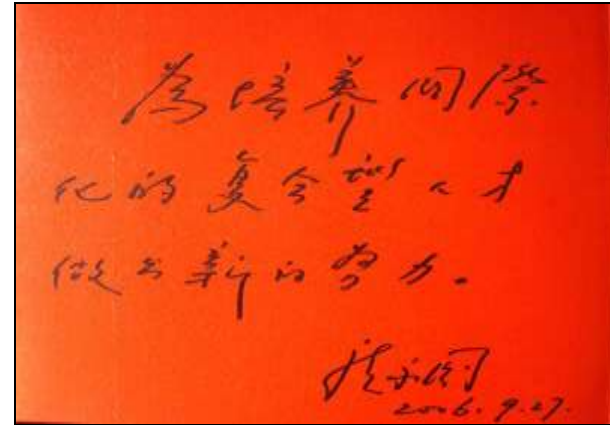 為培养国際
化的复合型人才
做出新的努力。
2006.9.27.